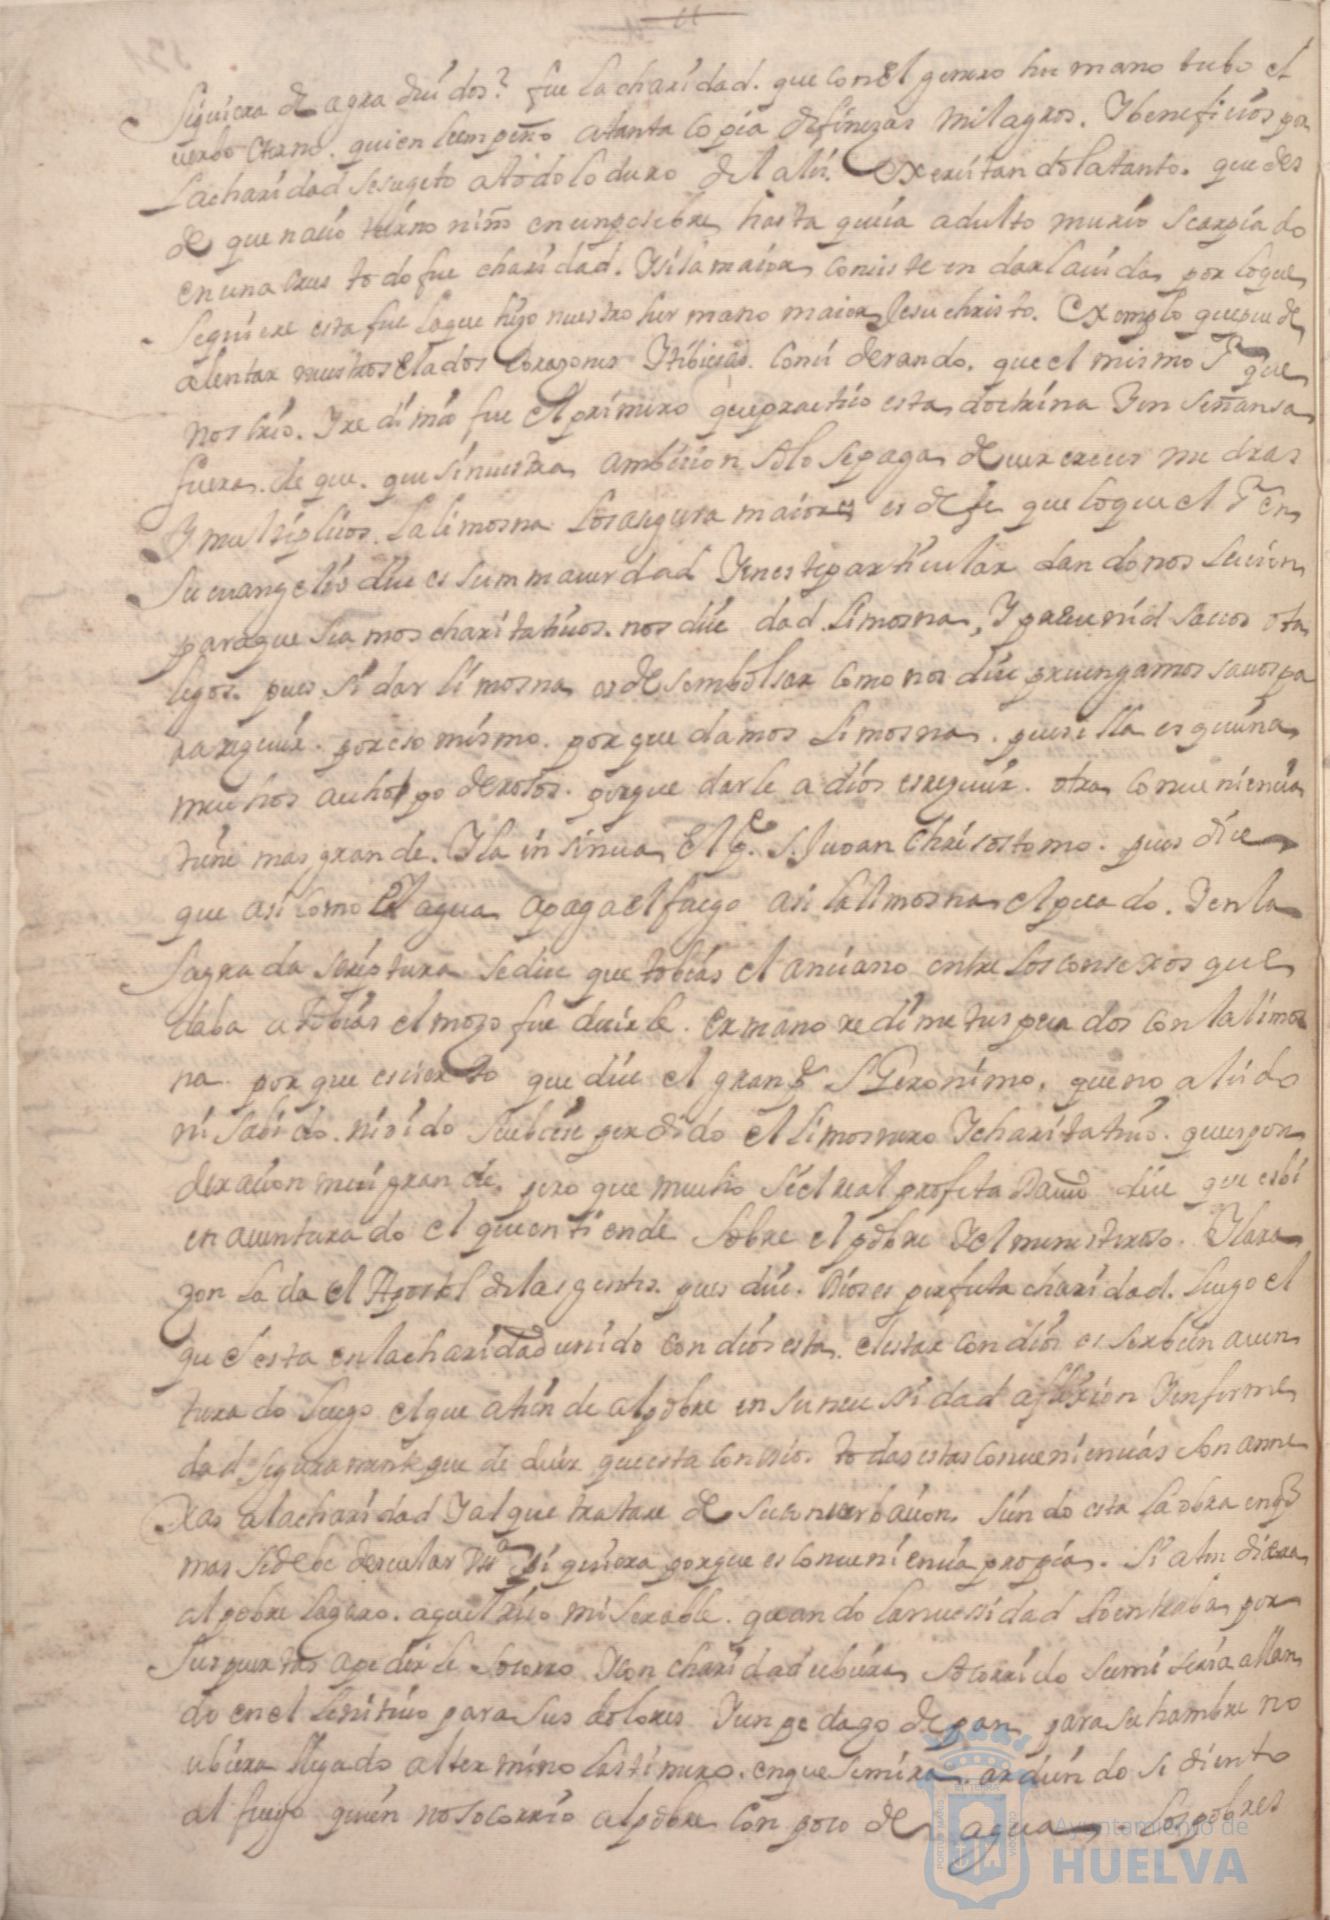 siquiera de agradeuidos? fue la charidad. que con el genero humano tubo el
uerbo eterno. quien lo empeño atanta copia de finezas milagros. Y beneficios por
la charidad se sugeto a todo lo duro del aliu. exercitandola tanto. que des
de que nacio tierno niño en un pesebre, hasta que ia adulto murio scarpiado
en una crus todo fue charidad. Y si la maior consiste en dar la uida, por lo que
se quiere esta fue la que hizo nuestro hermano maior Jesuchristo. Exemplo que puede
alentar nuestros elados corazones Y tibiesas. considerando. que el mismo Sr que
nos crio. Y redimio fue el primero que practico esta doctrina Y enseñansa
fuera. de que. que si nuestra ambicion solo se paga de uer crecer medras
Y multiplicos. la limosna los asegura maiores es de fe que lo que el Sr en
su euangelio dice es summa uerdad Y en este particular dandonos leccion
para que seamos charitatiuos. nos dice dad limosna, Y preuenid sacos o ta
legos. pues si dar limosna es desembolsar como nos dice preuengamos sacos pa
ra reciuir. por eso mismo. por que damos limosna. pues ella es quien a
muchos a echo poderosos. porque darle a dios es reciuir. otra conueniencia
tiene mas grande. Y la insinua el Pe. S. Juoan Chrisostomo. pues dice
que asi como el agua apaga el fuego asi la limosna el pecado. Y en la
sagrada scriptura se dice que tobias el anciano entre los consexos que
daba a tobias el mozo fue decirle. ermano redime tus pecados con la limos
na. por que es cierto que dice el gran Pe S Geronimo. que no a leido
ni sabido. ni oido se ubiese perdido el limosnero Y charitatiuo. que es pon
deracion mui grande, pero que mucho si el real profeta Dauid dice que es bi
enauenturado el que entiende sobre el pobre Y el menesteroso. Y la ra
zon la da el Apostol de las gentes. pues dice. Dios es perfecta charidad. luego el
que esta en la charidad unido con dios esta. el estar con dios es ser bienauen
turado luego el que atiende al pobre en su necessidad aflixion Y enferme
dad seguramente puede decir que esta con Dios. todas estas conueniencias son anne
xas a la charidad Y al que tratare de su conserbacion. siendo esta la obra en que
mas se debe desuelar siquiera porque es conueniencia propia. Si atendiera
al pobre lazaro. aquel rico miserable. quando la necessidad lo entraba por
sus puertas a pedirle socorro Y con charidad ubiera socorrido su miseria allan
do en el lenitiuo para sus dolores Y un pedazo de pan, para su hambre no
ubiera llegado al termino lastimero. en que se mira. ardiendo sediento
al fuego quien no socorrio al pobre con poco de agua. los pobres
Ayuntamiento de
HUELVA